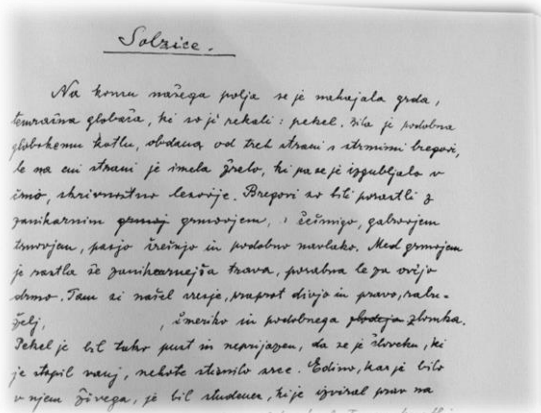 Solzice.
Na koncu našega polja se je nahajala grda,
temračna globača, ki so ji rekali: pekel. Bila je podobna
globokemu kotlu, obdana od treh strani s strmimi bregovi,
le na eni strani je imela žrelo, ki pa se je izgubljalo v
črno, skrivnostno lesovje. Bregovi so bili porastli z
zanikarnim grmovjem, s ščimigo, gabrovjem
trnovjem, pasjo črešnjo in podobno navlako. Med grmovjem
je rastla še zanikarnejša trava, porabna le za ovčjo
drmo. Tam si našel vresje, praprot divjo in pravo, rabu-
želj, , čmeriko in podobnega zlomka.
Pekel je bil tako pust in neprijazen, da se je človeku, ki
je stopil vanj, nehote stisnilo srce. Edino, kar je bilo
v njem živega, je bil studenec, ki je izviral prav na